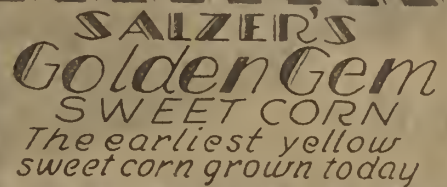 SALZER'S
Golden Gem
SWEET CORN
The earliest yellow
sweet corn grown today